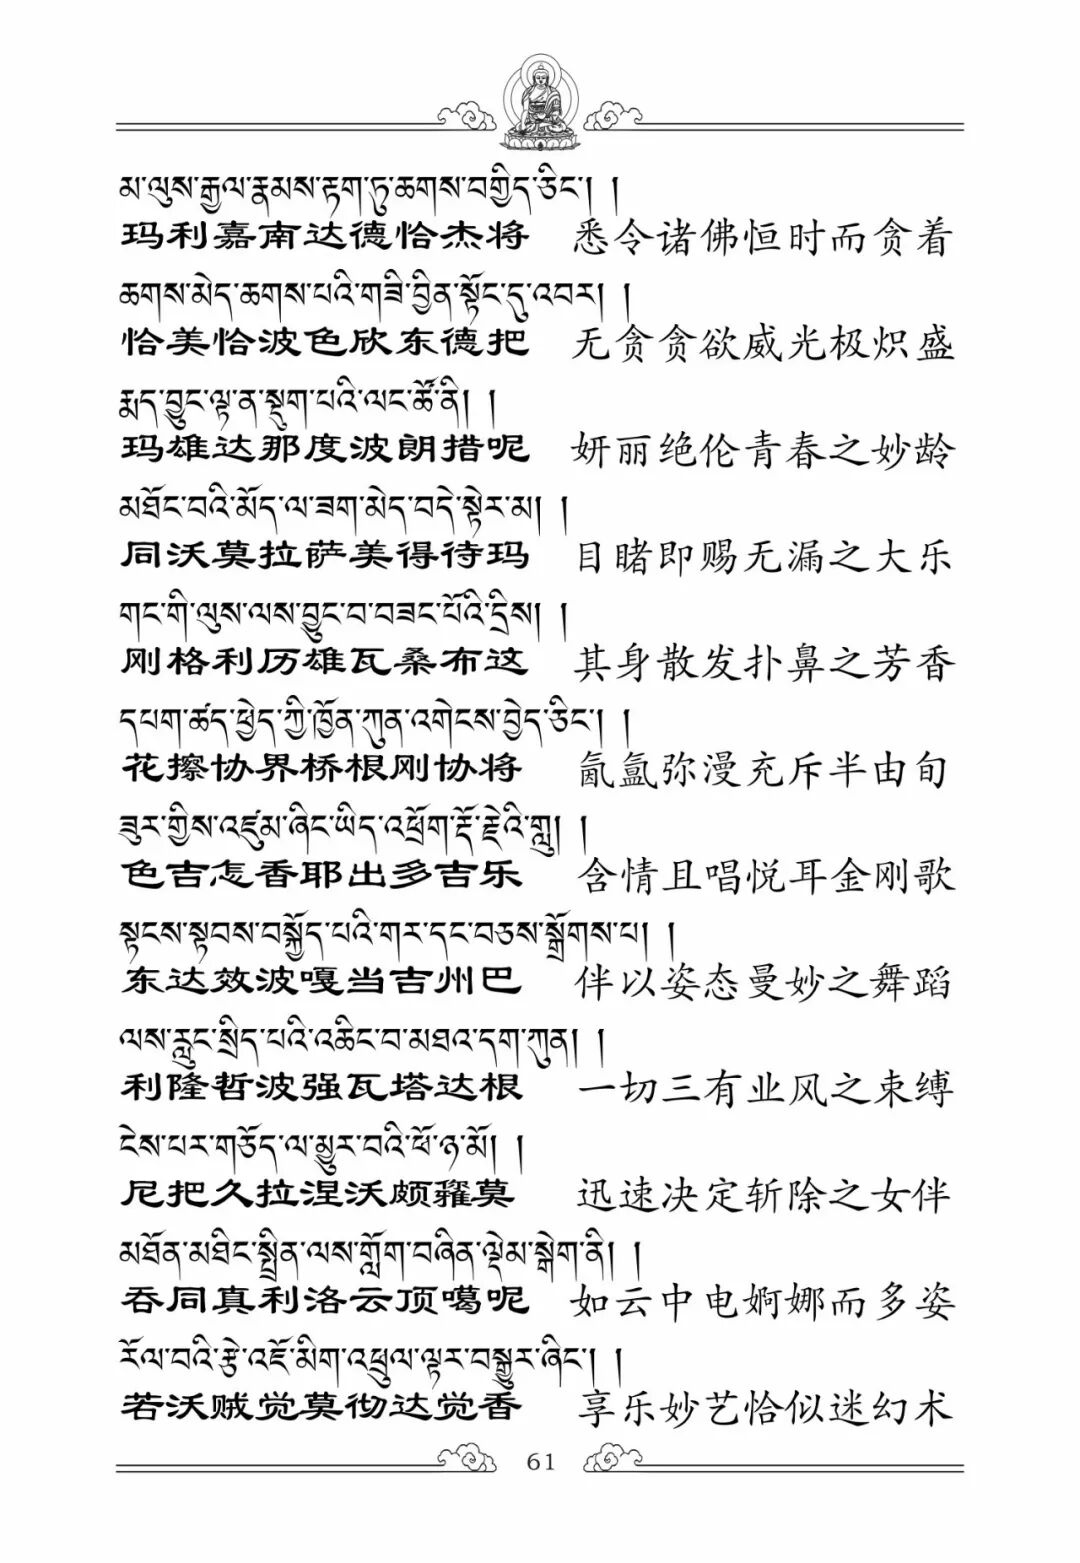 མ་ལུས་རྒྱལ་རྣམས་རྟག་ཏུ་ཆགས་བགྱིད་ཅིང་། །
玛利嘉南达德恰杰将 悉令诸佛恒时而贪着
ཆགས་མེད་ཆགས་པའི་གཟི་བྱིན་སྟོང་དུ་འབར། །
恰美恰波色欣东德把 无贪贪欲威光极炽盛
རྨད་བྱུང་ལྟ་ན་སྡུག་པའི་ལང་ཚོ་ནི། །
玛雄达那度波朗措呢 妍丽绝伦青春之妙龄
མཐོང་བའི་མོད་ལ་ཟག་མེད་བདེ་སྟེར་མ། །
同沃莫拉萨美得待玛 目睹即赐无漏之大乐
གང་གི་ལུས་ལས་བྱུང་བ་བཟང་པོའི་དྲིས། །
刚格利历雄瓦桑布这 其身散发扑鼻之芳香
དཔག་ཚད་ཕྱེད་ཀྱི་ཁྱོན་ཀུན་འགེངས་བྱེད་ཅིང་། །
花擦协界桥根刚协将 氤氲弥漫充斥半由旬
ཟུར་གྱིས་འཛུམ་ཞིང་ཡིད་འཕྲོག་རྡོ་རྗེའི་གླུ། །
色吉怎香耶出多吉乐 含情且唱悦耳金刚歌
སྟངས་སྟབས་བསྐྱོད་པའི་གར་དང་བཅས་སྒྲོགས་པ། །
东达效波嘎当吉州巴 伴以姿态曼妙之舞蹈
ལས་རླུང་སྲིད་པའི་འཆིང་བ་མཐའ་དག་ཀུན། །
利隆哲波强瓦塔达根 一切三有业风之束缚
ངེས་པར་གཅོད་ལ་མྱུར་བའི་ཕོ་ཉ་མོ། །
尼把久拉涅沃颇糶莫 迅速决定斩除之女伴
མཐོན་མཐིང་སྤྲིན་ལས་གློག་བཞིན་ལྡེམ་སྒེག་ནི། །
吞同真利洛云顶噶呢 如云中电婀娜而多姿
རོལ་བའི་རྩེ་འཇོ་མིག་འཕྲུལ་ལྟར་བསྒྱུར་ཞིང་། །
若沃贼觉莫彻达觉香 享乐妙艺恰似迷幻术
61